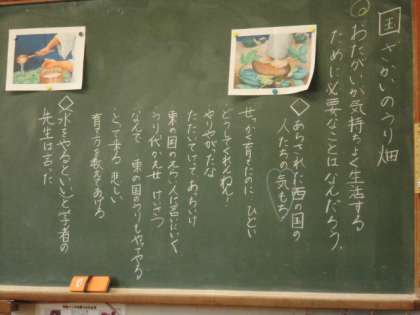 国ざかいのうり畑
おたがいが気持ちよく生活する
ために必要なことはなんだろう。
◇あらされた西の国の
人たちの気もち
せっかく育てたのに ひどい
どうしてくれんねん!
やりやがったな
たたいてけって あっちいけ
東の国のえらい人に言いにいく
うり代かえせ けいさつ
なんで 東の国のうりもやってやる
とって来る 悲しい
育て方を教えてあげる
◇水をやるといいと学者の
先生は言った